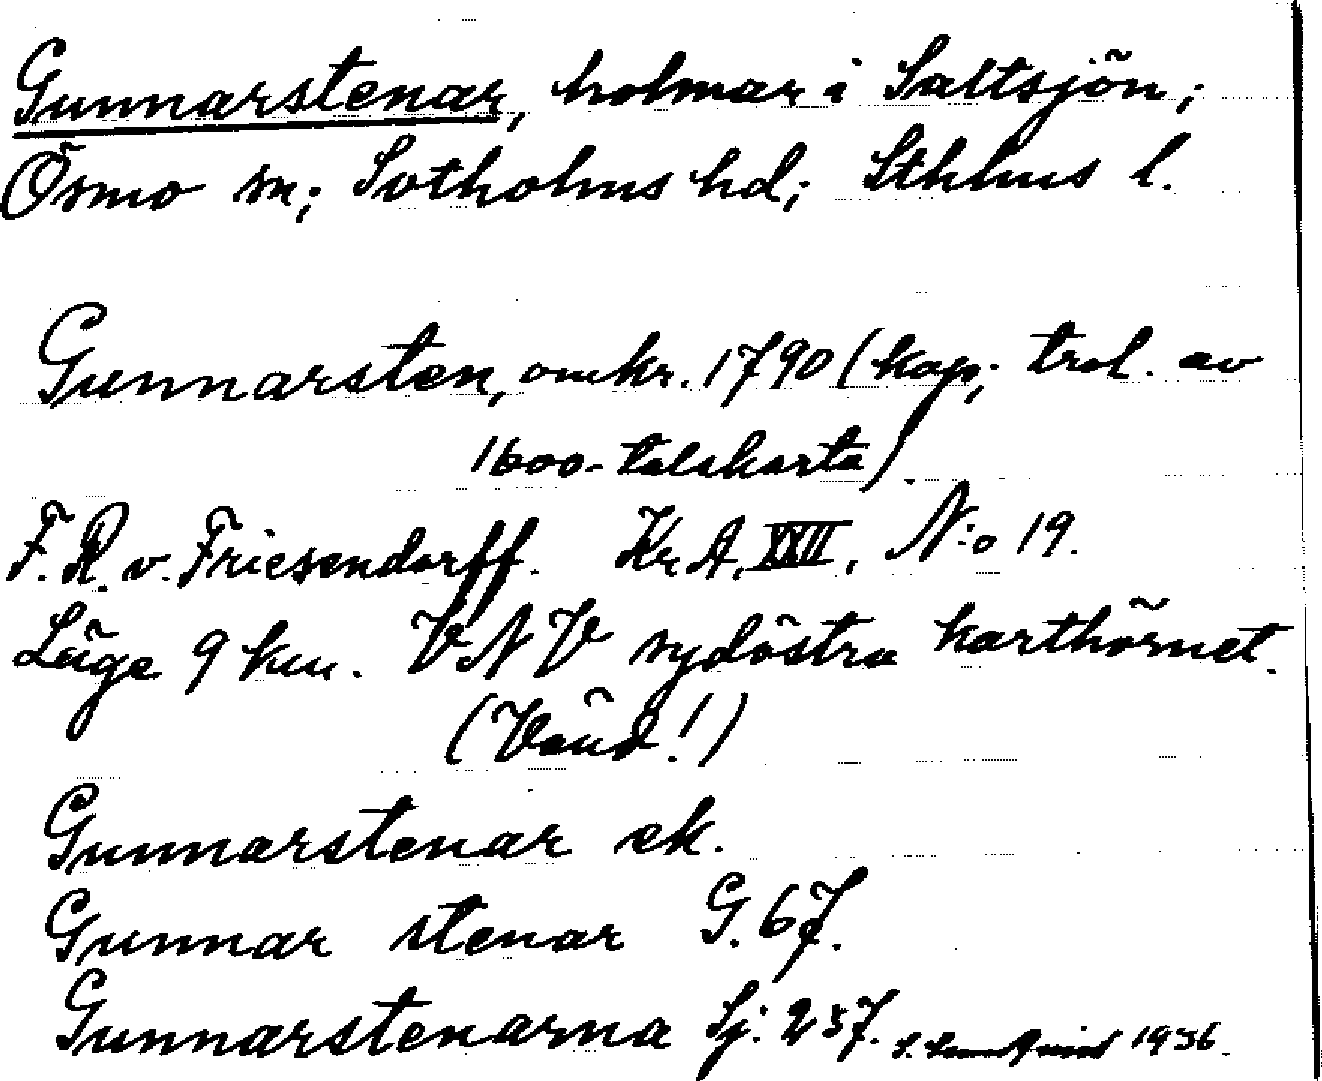 Gunnarstenar, holmar i Saltsjön;
Ösmo sn; Sotholms hd; Sthlms l.
Gunnarsten, omkr. 1790 (kop; trol. av
1600-talskarta).
F. R. v. Friesendorff. Kr. A, XXII, N:o 19.
Läge 9 km. VNV sydöstra karthörnet.
(Vänd!)
Gunnarstenar ek.
Gunnar stenar G. 67.
Gunnarstenarna Sj: 237. 1936.